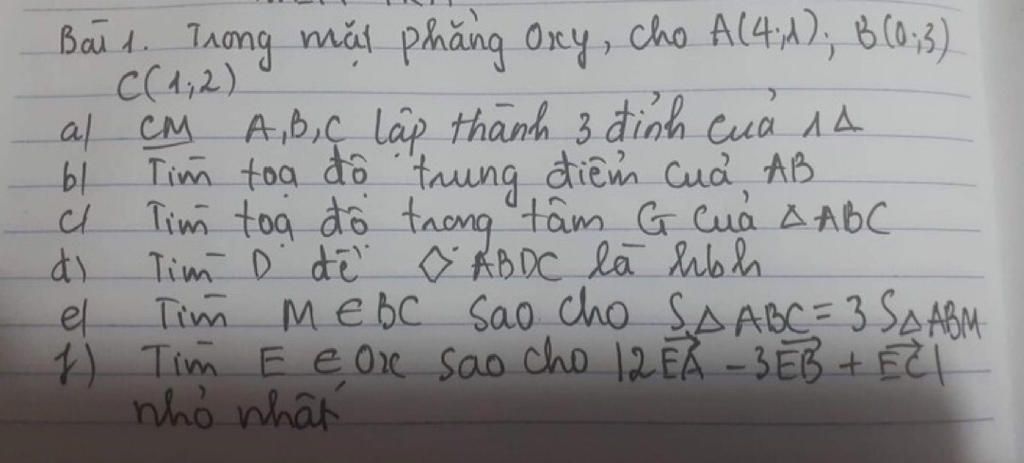 Bài 1. Trong mặt phẳng Oxy, cho A(4;1); B(0;3)
C(1;2)
a) CM A,B,C lập thành 3 đỉnh của 1 Δ
b) Tìm toạ độ trung điểm của AB
c) Tìm toạ độ trọng tâm G của Δ ABC
d) Tìm D để ◇ ABDC là hbh
e) Tìm M ∈ BC sao cho S Δ ABC = 3 S Δ ABM
f) Tìm E ∈ Ox sao cho |2\vec{EA} - 3\vec{EB} + \vec{EC}|
nhỏ nhất